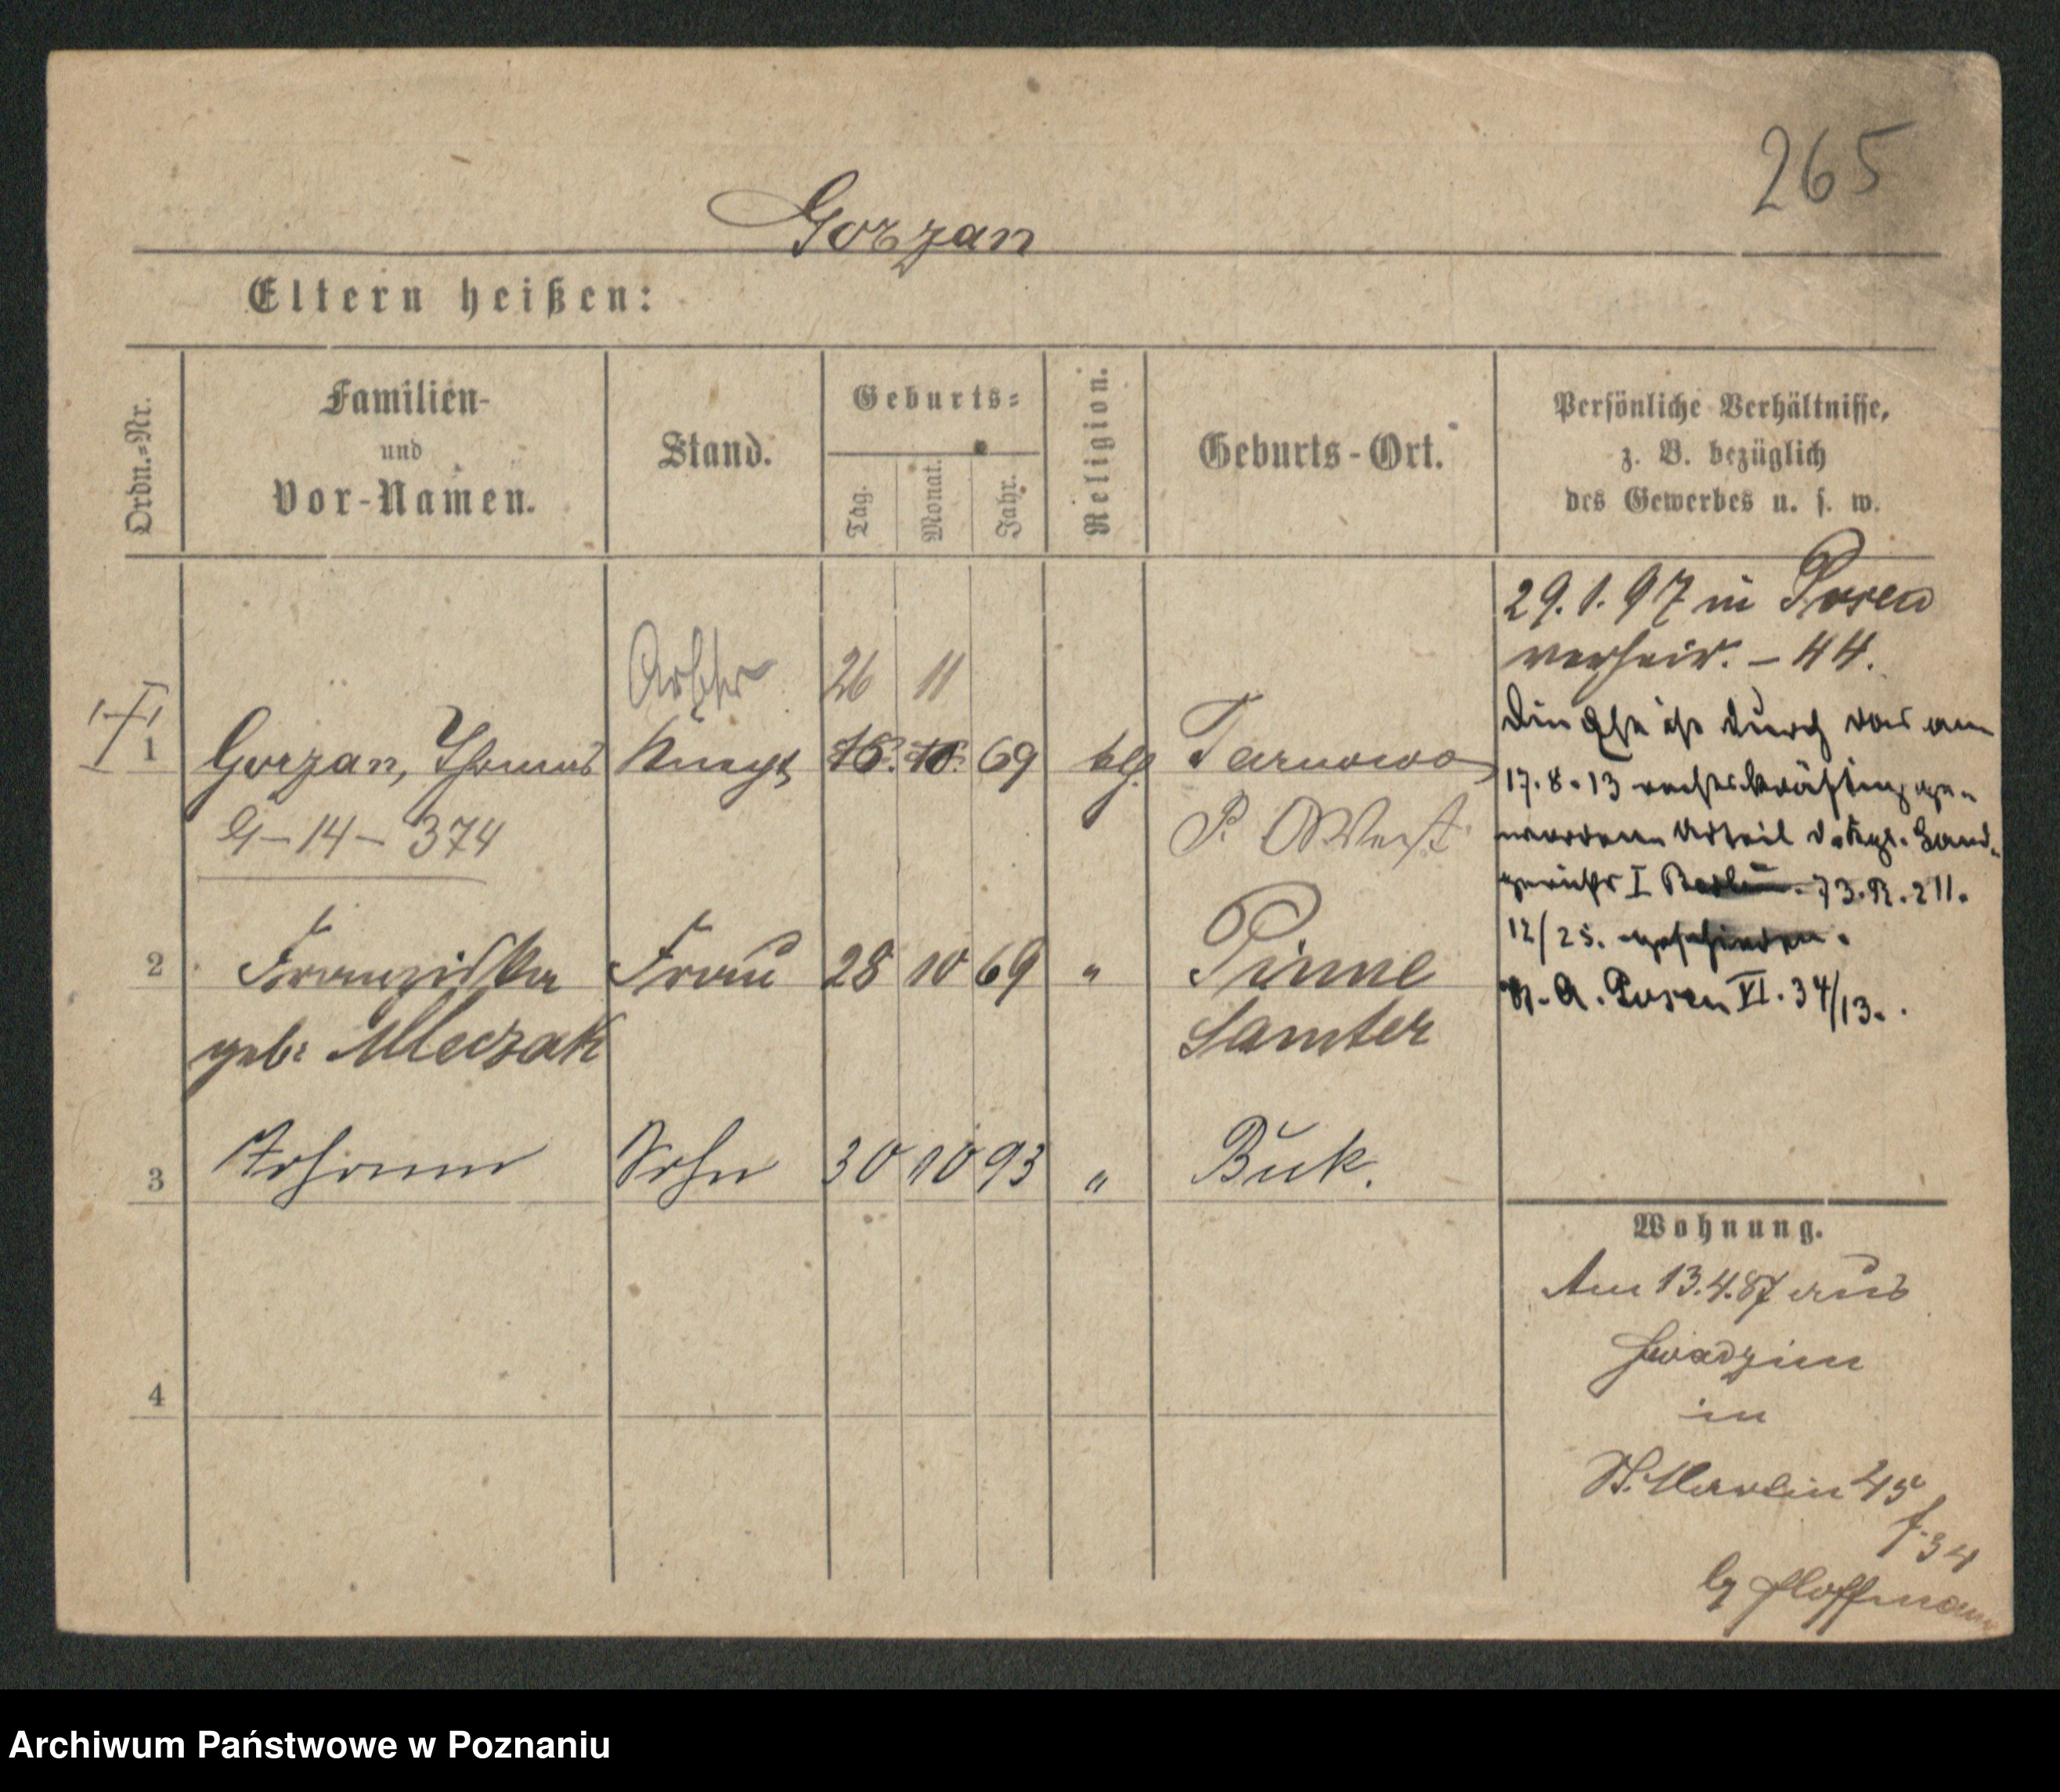 265
Gorzan
Eltern heißen:
Ordn.-Nr.
Familien-
und
Vor-Namen.
Stand.
Geburts-
Tag.
Monat.
Jahr.
Religion.
Geburts-Ort.
Persönliche Verhältnisse,
z. B. bezüglich
des Gewerbes u. s. w.
29.1.97 in Posen
verheir. - 44.
Die Ehe ist durch das am
17.8.13 rechtskräftig ge-
wordene Urteil d. Kgl. Land-
gerichts I Berlin. 73.R.211.
12/25. geschieden.
St. A. Posen VI. 34/13.
Arbtr 26 11
1 Gorzan, Thomas Knecht 16. 10. 69 klg Tarnowo
G-14-374 P. West
2 Franziska Frau 28 10 69 " Pinne
geb: Mleczak Samter
3 Johann Sohn 30 10 93 " Buk.
4
Wohnung.
Am 13.4.87 aus
in
St. Martin 45
f. 34
Hoffmann
Archiwum Państwowe w Poznaniu